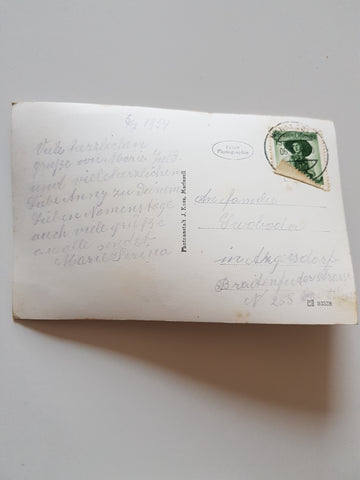 6/7 1954
Viele herzlichen
grüße von Maria Zell
und viele herzlichen
Liebe Anny zu Deinem
Lieben Namenstage
auch viele grüße
an alle sendet
Marie
Echte
Photographie
Photoanstalt J. Kuss, Mariazell
An Familie
Swoboda
in Atzgersdorf
Breitenfurterstrasse
N 255